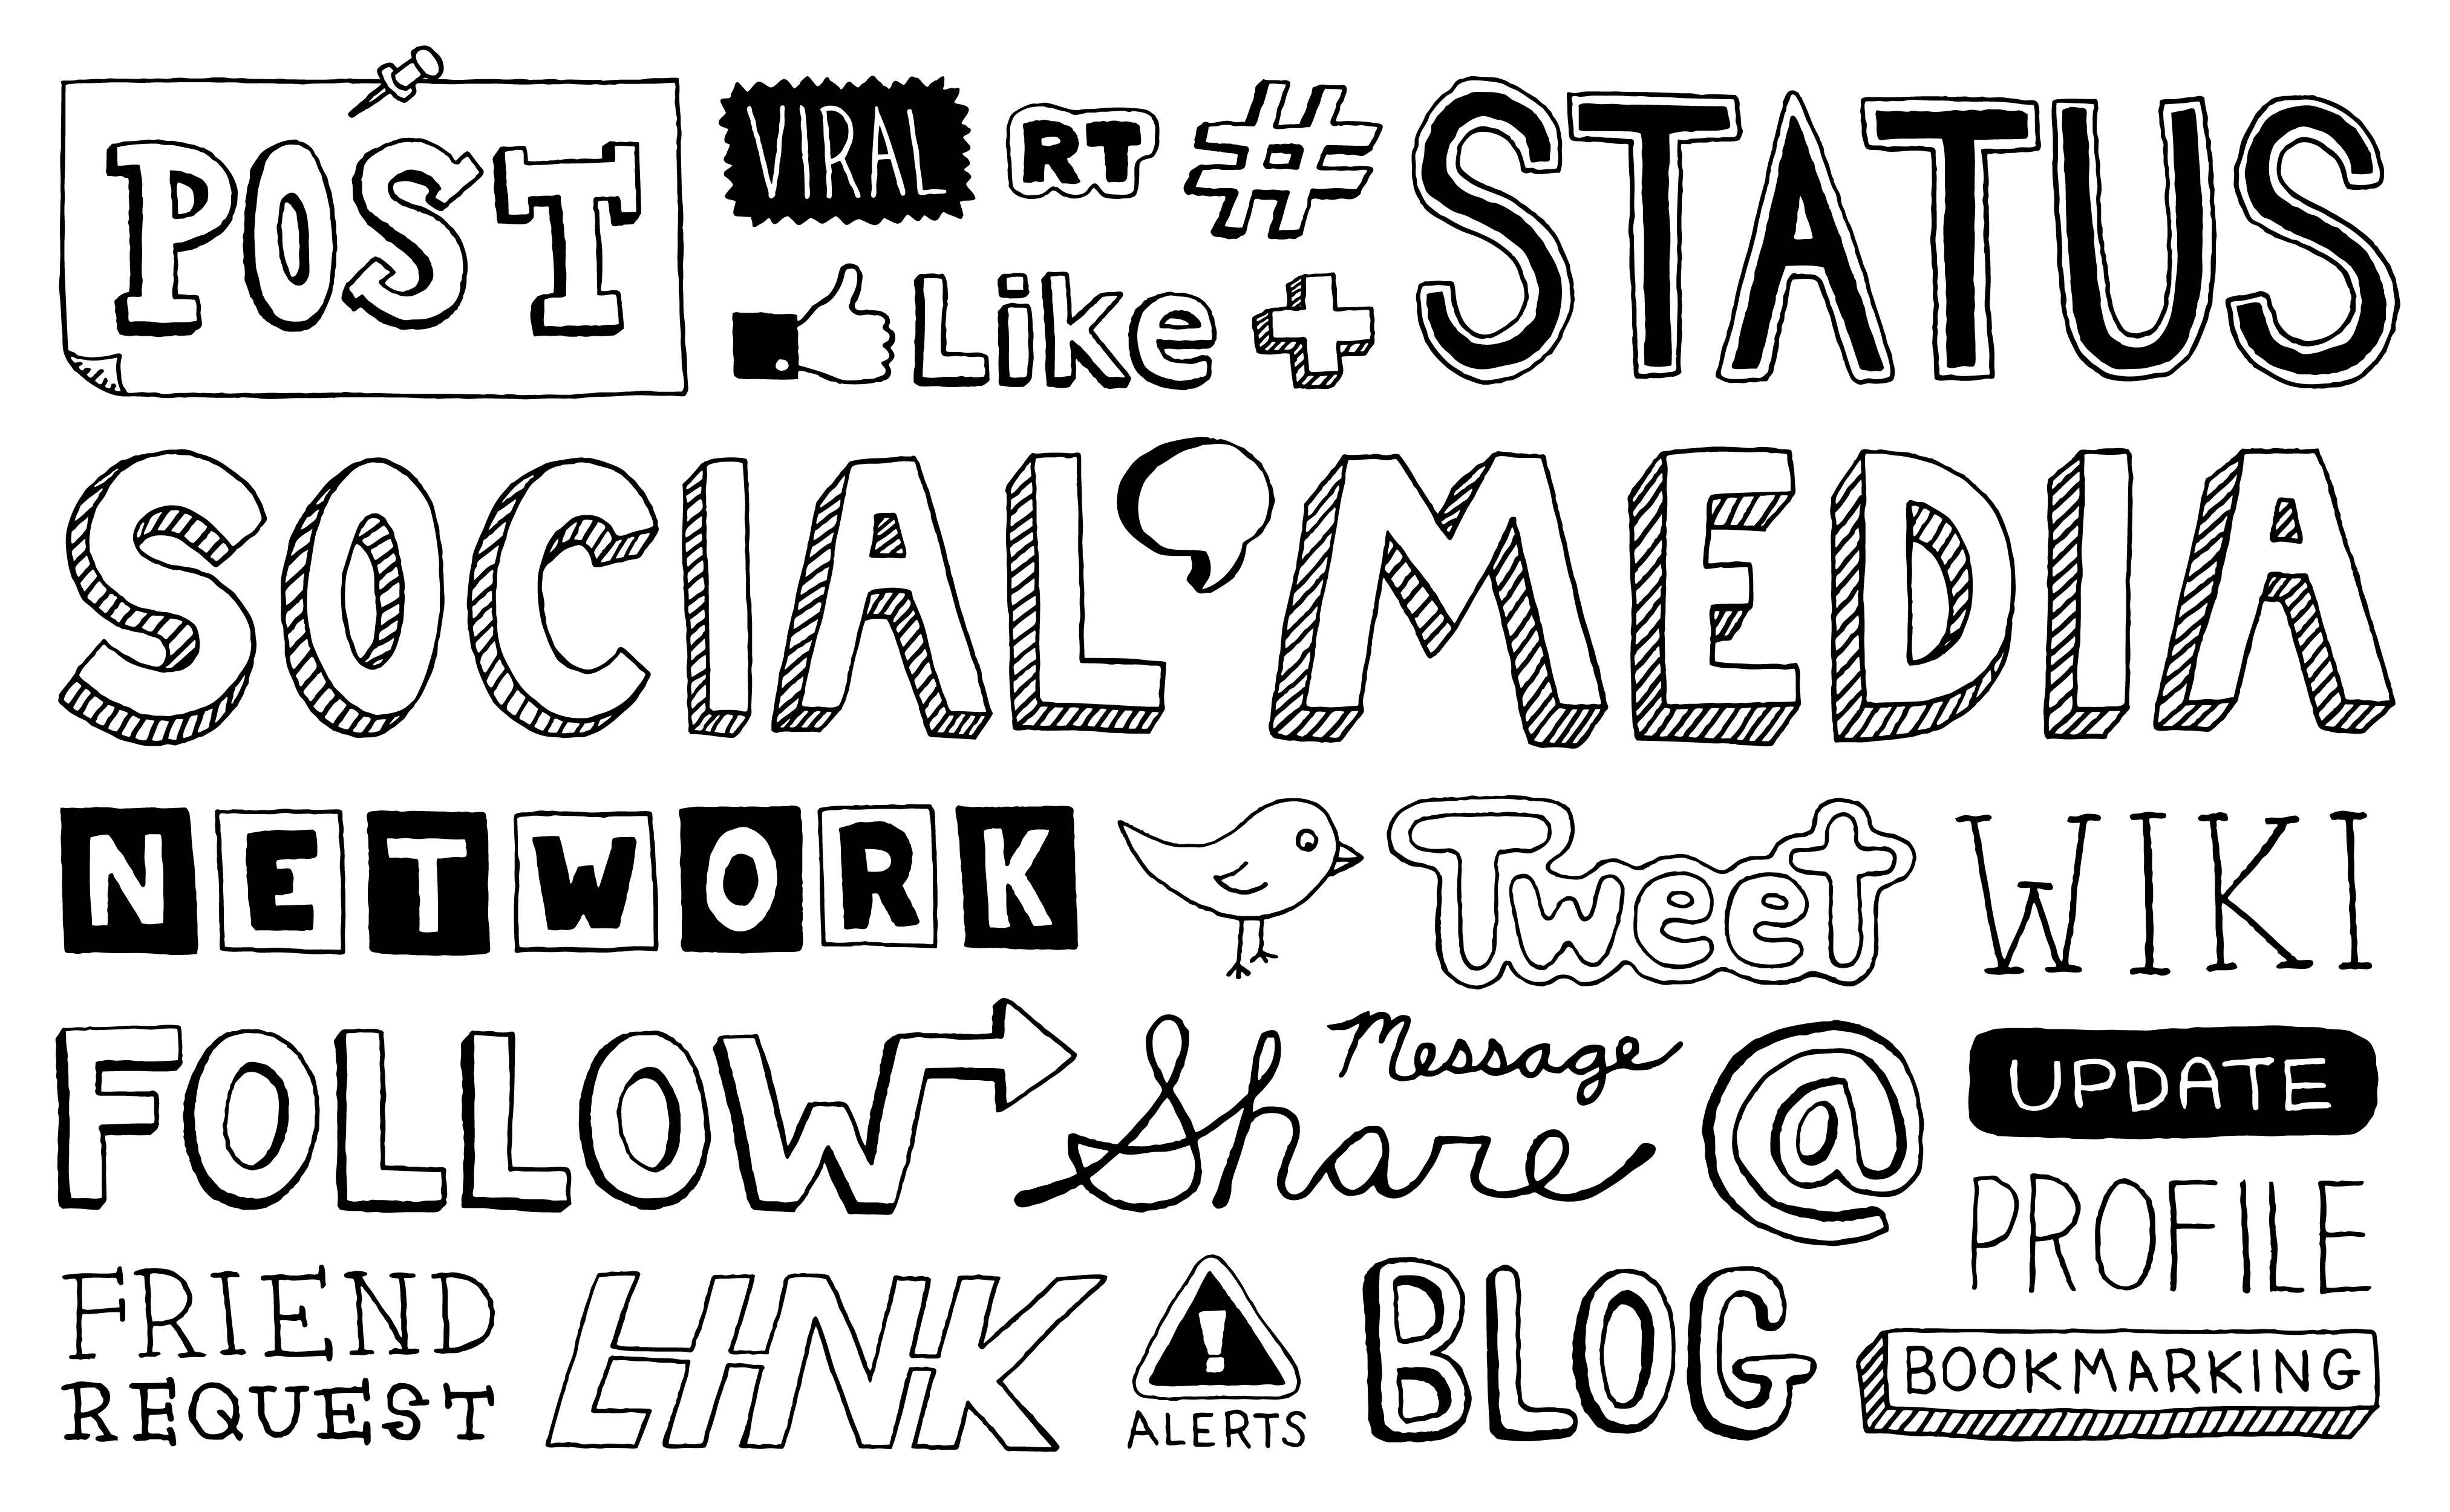 POST
VIRAL
RT
#
Like
+
STATUS
SOCIAL MEDIA
NETWORK
Tweet
WIKI
FOLLOW
Share
Message
@
UPDATE
PROFILE
FRIEND
REQUEST
LINK
!
ALERTS
BLOG
BOOKMARKING